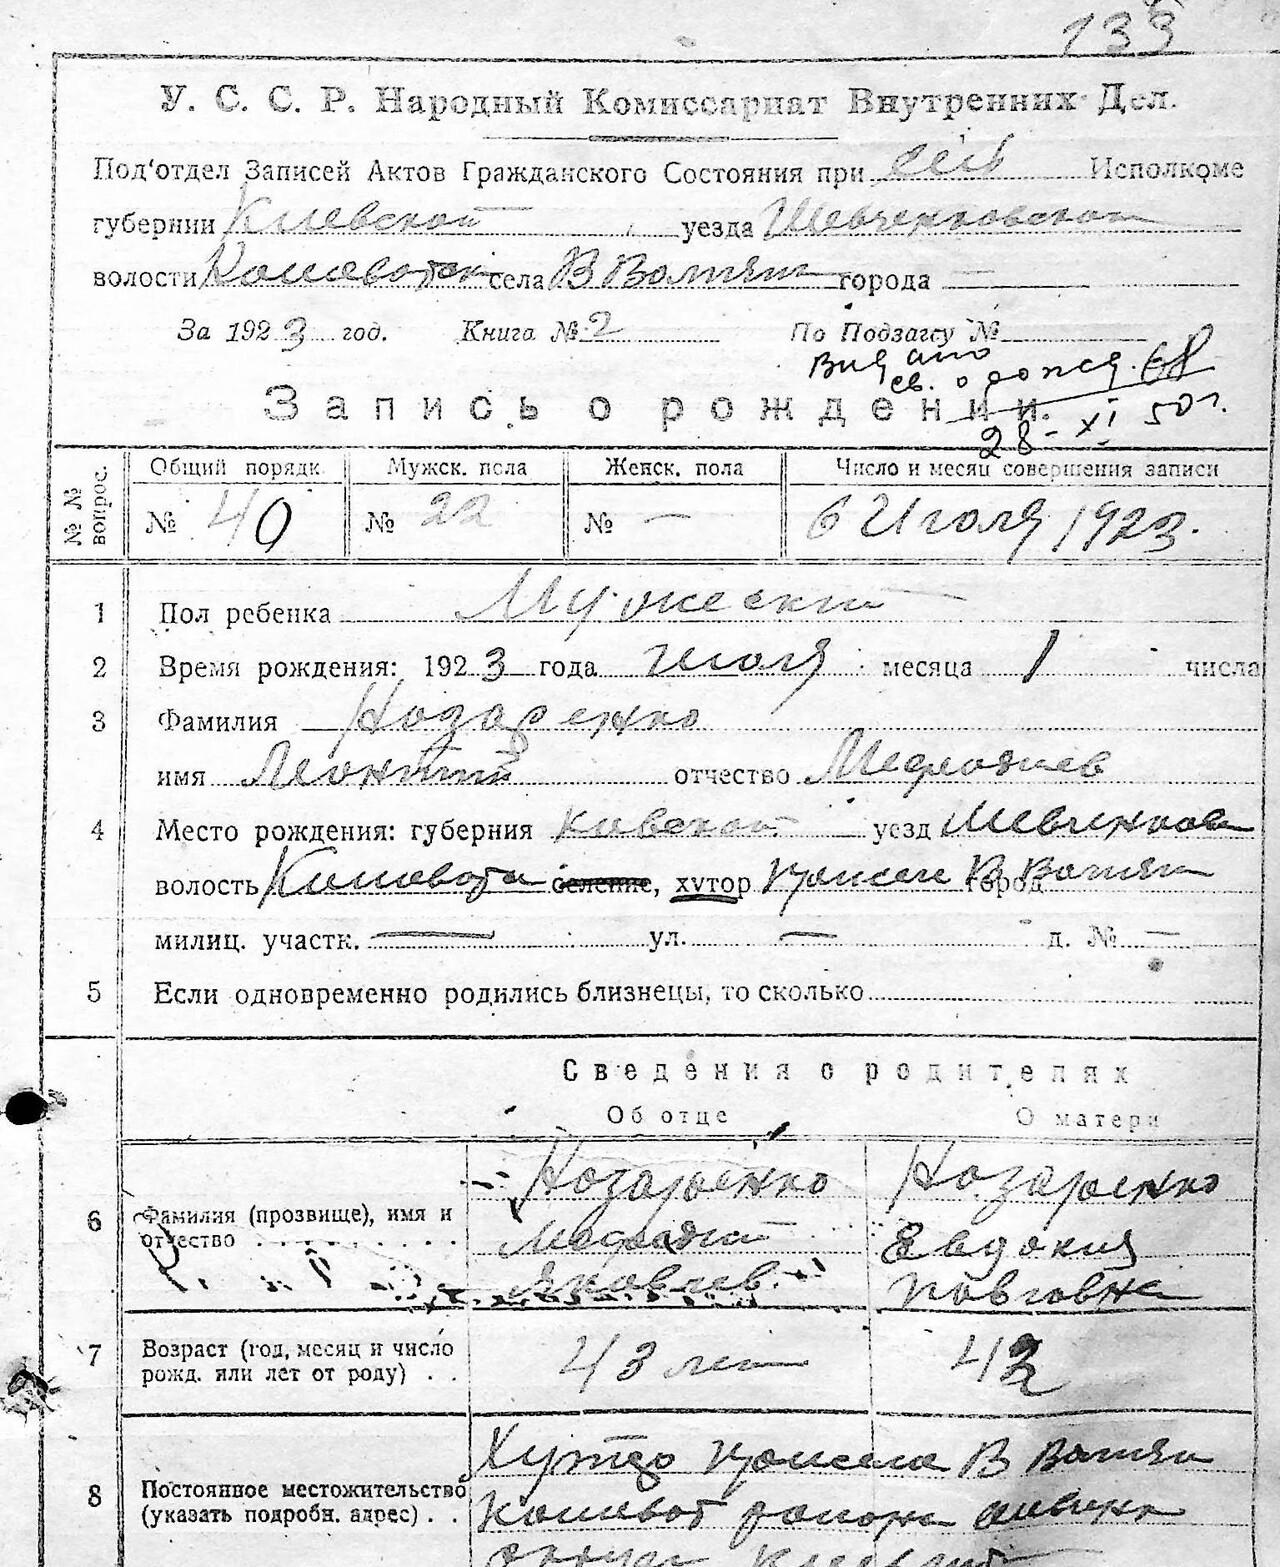 133
У. С. С. Р. Народный Комиссариат Внутренних Дел.
Под'отдел Записей Актов Гражданского Состояния при Исполкоме
губернии Киевской уезда Шевченковской
волости села В города —
За 1923 год. Книга № 2 По Подзагсу №
Видано
св. о рожд. 68
28-XI 50 г.
Запись о рождении.
№ № вопрос. Общий порядк. Мужск. пола Женск. пола Число и месяц совершения записи
№ 40 № 22 № — 6 Июля 1923.
1 Пол ребенка Мужеский
2 Время рождения: 1923 года июля месяца 1 числа
3 Фамилия Нозаренко
имя Леонтий отчество Мефодиев
4 Место рождения: губерния Кивской уезд
волость селение, хутор город
милиц. участк. — ул. — д. № —
5 Если одновременно родились близнецы, то сколько
Сведения о родителях
Об отце О матери
6 Фамилия (прозвище), имя и отчество Нозаренко Нозаренко
Мефодий Евдокия
Яковлев.
7 Возраст (год, месяц и число рожд. или лет от роду) 43 лет 42
8 Постоянное местожительство (указать подробн. адрес)